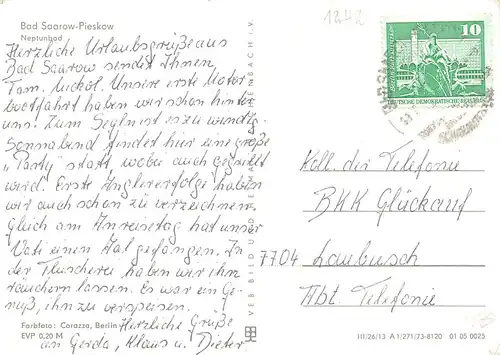 Bad Saarow-Pieskow
Neptunbad
Herzliche Urlaubsgrüße aus
Bad Saarow sendet Ihnen,
Fam. Nickol. Unsere erste Motor
bootfahrt haben wir schon hinter
uns. Zum Segeln ist es zu windig.
Sonnabend findet hier eine große
„Party" statt wobei auch gegrillt
wird. Erste Anglererfolge haben
wir auch schon zu verzeichnen.
Gleich am Anreisetag hat unser
Vati einen Aal gefangen. In
der Fleischerei haben wir ihn
räuchern lassen. Es war ein Ge-
nuß, ihn zu verspeisen.
Herzliche Grüße
an Gerda, Klaus u. Dieter
Farbfoto: Corazza, Berlin
EVP 0,20 M
VEB BILD UND HEIMAT REICHENBACH i. V.
1242
10
DEUTSCHE DEMOKRATISCHE REPUBLIK
Koll. der Telefonie
BKK Glückauf
7704 Laubusch
Abt. Telefonie
III/26/13 A 1/271/73-8120 01 05 0025